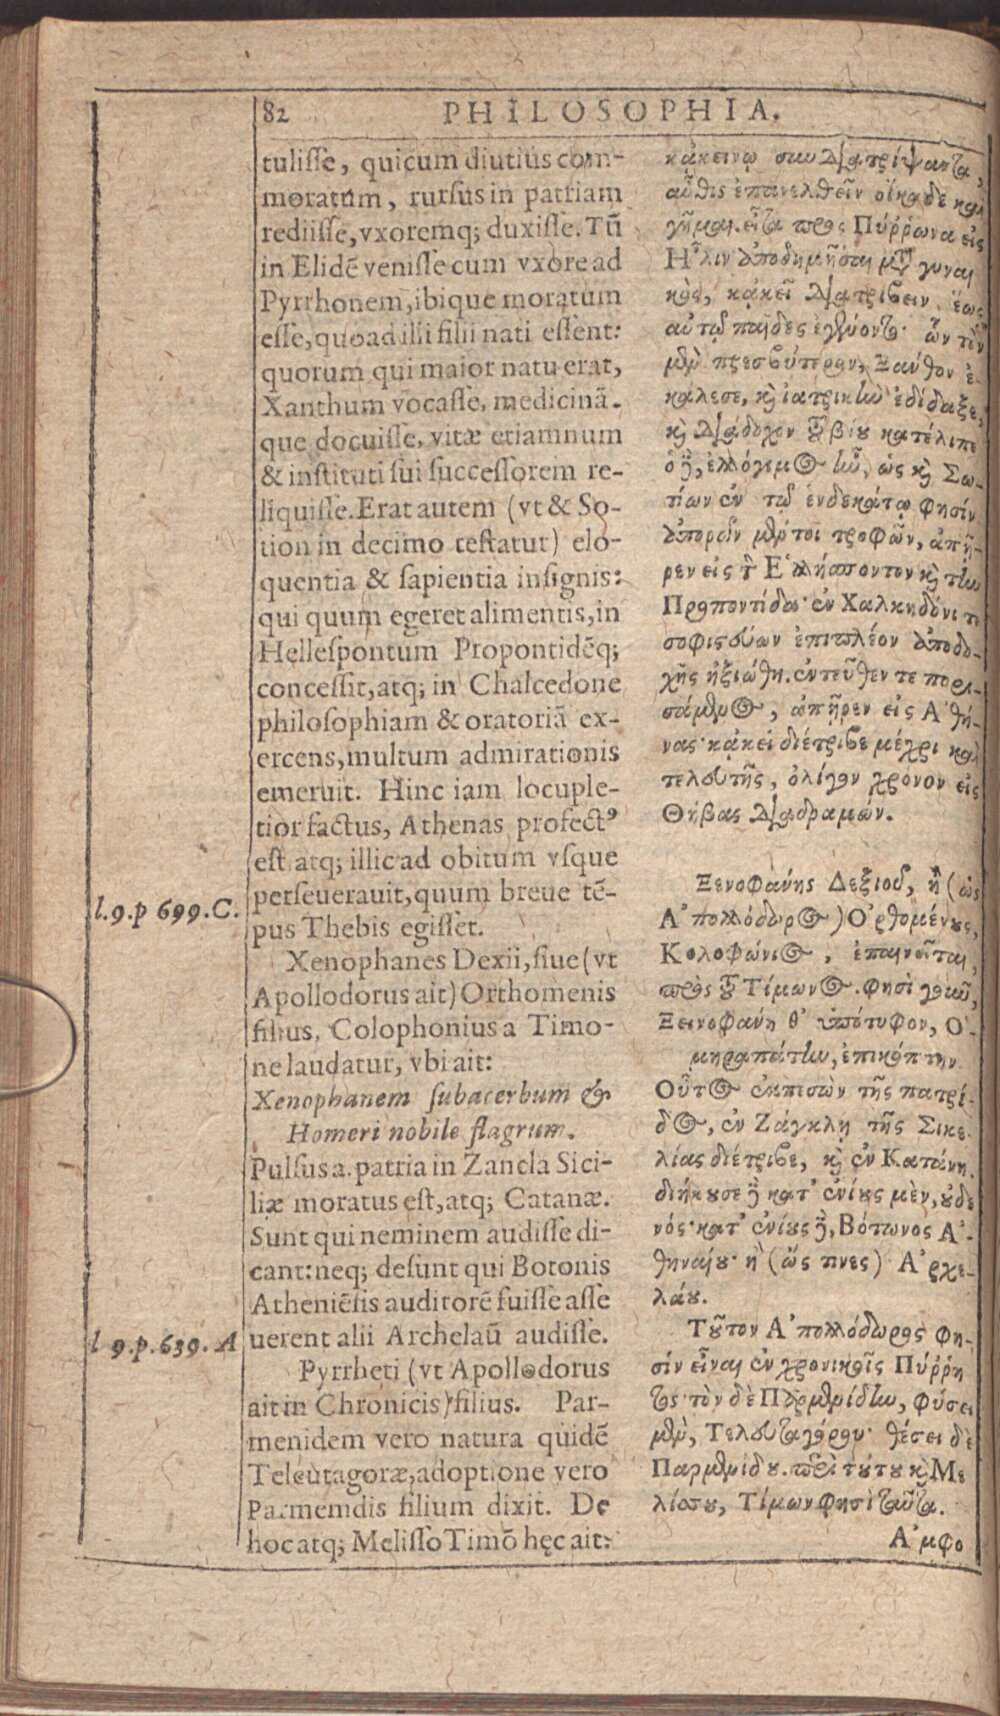 82 PHILOSOPHIA.
tulisse, quicum diutius com-
moratum, rursus in patriam
rediisse, vxoremq; duxisse. Tũ
in Elidẽ venisse cum vxore ad
Pyrrhonem, ibique moratum
esse, quoad illi filii nati essent:
quorum qui maior natu erat,
Xanthum vocasse, medicinã-
que docuisse, vitæ etiamnum
& instituti sui successorem re-
liquisse. Erat autem (vt & So-
tion in decimo testatur) elo-
quentia & sapientia insignis:
qui quum egeret alimentis, in
Hellespontum Propontidẽq;
concessit, atq; in Chalcedone
philosophiam & oratoriã ex-
ercens, multum admirationis
emeruit. Hinc iam locuple-
tior factus, Athenas profectꝰ
est atq; illic ad obitum vsque
perseuerauit, quum breue tẽ-
pus Thebis egisset.
l.9.p 699.C.
Xenophanes Dexii, siue (vt
Apollodorus ait) Orthomenis
filius, Colophonius a Timo-
ne laudatur, vbi ait:
Xenophanem subacerbum &
Homeri nobile flagrum.
Pulsus a patria in Zancla Sici-
liæ moratus est, atq; Catanæ.
Sunt qui neminem audisse di-
cant: neq; desunt qui Botonis
Atheniẽsis auditorẽ fuisse asse
uerent alii Archelaũ audisse.
l 9.p.639.A
Pyrrheti (vt Apollodorus
ait in Chronicis) filius. Par-
menidem vero natura quidẽ
Teleutagoræ, adoptione vero
Parmenidis filium dixit. De
hoc atq; Melisso Timõ hęc ait:
κᾀκείνῳ συνδιατρίψαντα,
αὖθις ἐπανελθεῖν οἴκαδε καὶ
γῆμαι. εἶτα πρὸς Πύῤῥωνα εἰς
Ἦλιν ἀποδημῆσαι μετὰ γυναι
κὸς, κᾀκεῖ διατρίβειν ἕως
αὐτῷ παῖδες ἐγένοντο· ὧν τὸν
μὲν πρεσβύτερον, Ξάνθον ἐ-
κάλεσε, καὶ ἰατρικὴν ἐδίδαξε,
καὶ διάδοχον τοῦ βίου κατέλιπε
ὁ δὲ, ἐλλόγιμος ἦν, ὡς καὶ Σω-
τίων ἐν τῷ ἑνδεκάτῳ φησίν
ἀπορῶν μέντοι τροφῶν, ἀπῆ-
ρεν εἰς τὸν Ἑλλήσποντον καὶ τὴν
Προποντίδα· ἐν Χαλκηδόνι τε
σοφιστεύων ἐπιπλέον ἀποδο-
χῆς ἠξιώθη. ἐντεῦθεν τε πορι-
σάμενος, ἀπῆρεν εἰς Ἀθή-
νας· κᾀκεῖ διέτριβε μέχρι καὶ
τελευτῆς, ὀλίγον χρόνον εἰς
Θήβας διαδραμών.
Ξενοφάνης Δεξιοῦ, ἢ (ὡς
Ἀπολλόδωρος) Ὀρθομένους,
Κολοφώνιος, ἐπαινεῖται,
πρὸς τοῦ Τίμωνος. φησὶ γοῦν,
Ξεινοφάνη θ' ὑπότυφον, Ὁ-
μηραπάτην, ἐπικόπτην
Οὗτος ἐκπεσὼν τῆς πατρί-
δος, ἐν Ζάγκλῃ τῆς Σικε-
λίας διέτριβε, καὶ ἐν Κατάνῃ.
διήκουσε δὲ κατ' ἐνίους μὲν, οὐδε
νός· κατ' ἐνίους δὲ, Βότωνος Ἀ-
θηναίου· ἢ (ὥς τινες) Ἀρχε-
λάου.
Τοῦτον Ἀπολλόδωρος φη-
σὶν εἶναι ἐν χρονικοῖς Πύῤῥη
τος· τὸν δὲ Παρμενίδην, φύσει
μὲν, Τελευταγόρου· θέσει δὲ
Παρμενίδου. περὶ τούτου καὶ Με
λίσσου, Τίμων φησὶ ταῦτα.
Ἀμφο